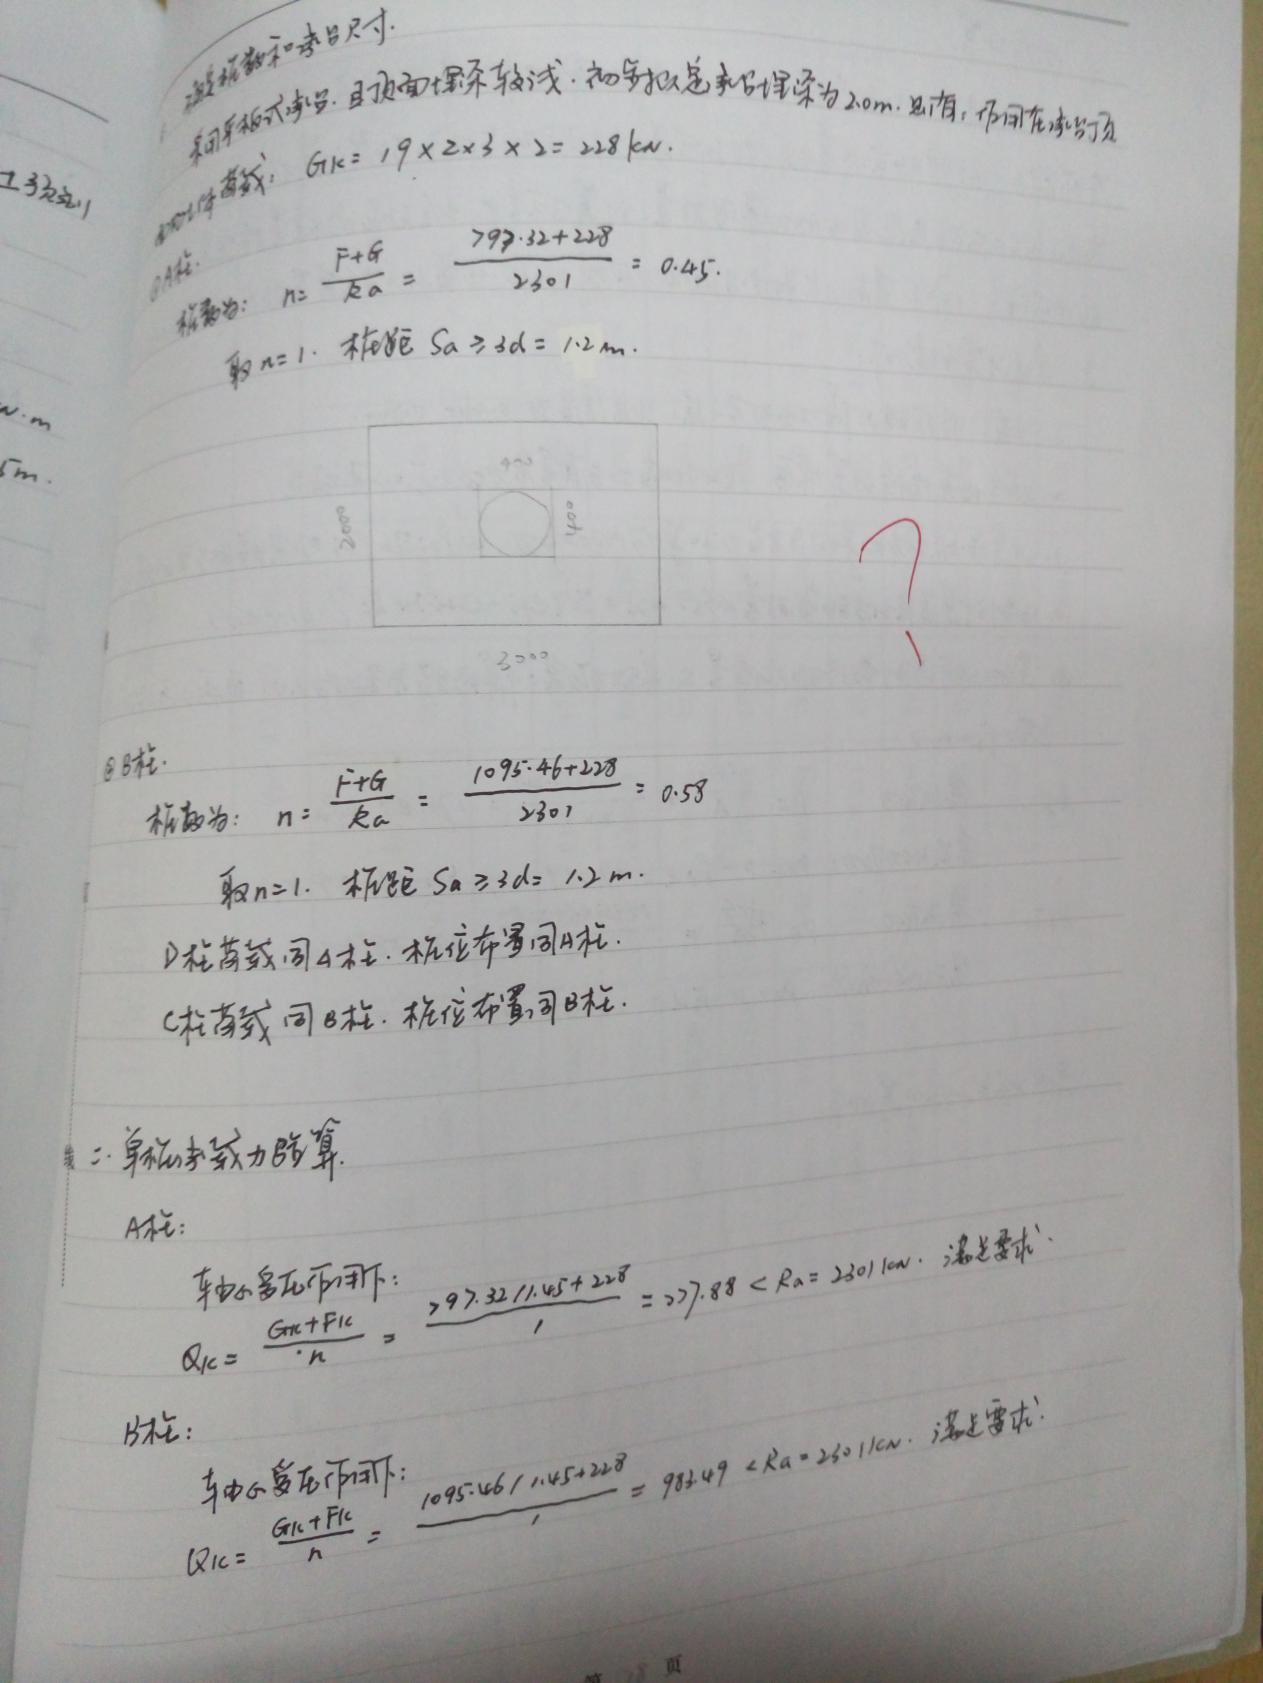 选桩数和承台尺寸.
采用平板式承台.且顶面埋深较浅.初步拟定承台埋深为2.0m.则有:作用在承台顶
荷载: Gk= 19×2×3×2=228kN.
①A柱.
桩数为: n= F+G / Ra = 797.32+228 / 2301 = 0.45.
取n=1. 桩距 Sa≥3d=1.2m.
400
400
2000
?
3000
②B柱.
桩数为: n= F+G / Ra = 1095.46+228 / 2301 = 0.58
取n=1. 桩距 Sa≥3d= 1.2m.
D柱荷载同A柱.桩位布置同A柱.
C柱荷载同B柱.桩位布置同B柱.
二.单桩承载力验算.
A柱:
轴心受压作用下:
Qk= Gk+Fk / n = 797.32/1.45+228 / 1 = 777.88 < Ra=2301kN. 满足要求.
B柱:
轴心受压作用下:
Qk= Gk+Fk / n = 1095.46/1.45+228 / 1 = 983.49 < Ra=2301kN. 满足要求.
第 页
N·m
5m.